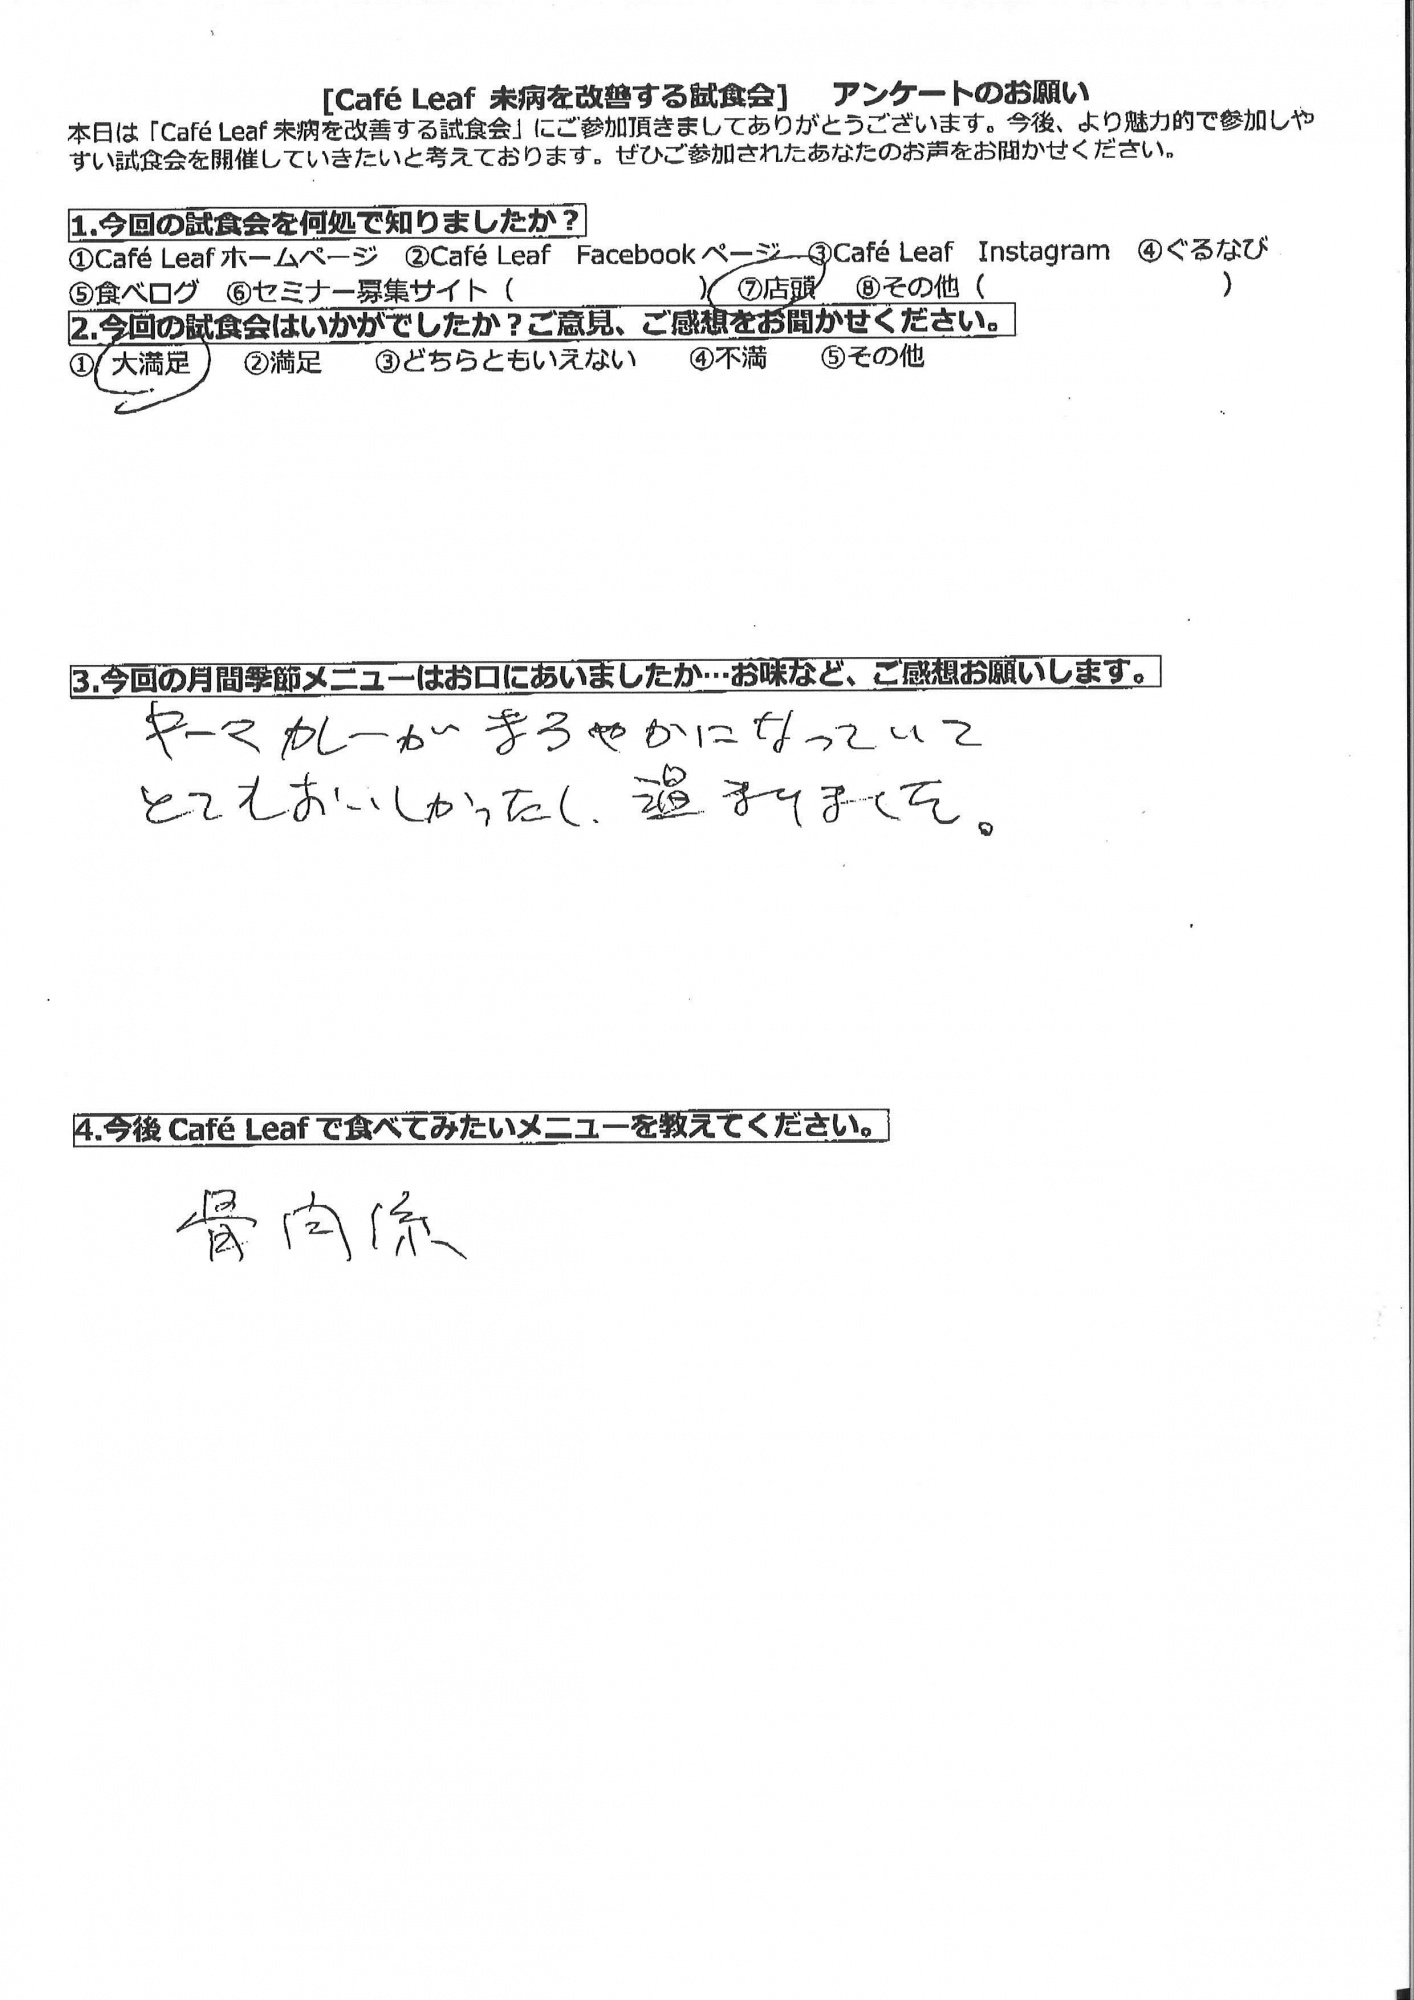 [Café Leaf 未病を改善する試食会]　アンケートのお願い
本日は「Café Leaf 未病を改善する試食会」にご参加頂きましてありがとうございます。今後、より魅力的で参加しや
すい試食会を開催していきたいと考えております。ぜひご参加されたあなたのお声をお聞かせください。
1.今回の試食会を何処で知りましたか？
①Café Leaf ホームページ　②Café Leaf　Facebook ページ　③Café Leaf　Instagram　④ぐるなび
⑤食べログ　⑥セミナー募集サイト（　　　　　　　）　⑦店頭　⑧その他（　　　　　　　　　）
2.今回の試食会はいかがでしたか？ご意見、ご感想をお聞かせください。
①　大満足　　②満足　　③どちらともいえない　　④不満　　⑤その他
3.今回の月間季節メニューはお口にあいましたか…お味など、ご感想お願いします。
キーマカレーがまろやかになっていて
とてもおいしかったし、温まりました。
4.今後 Café Leaf で食べてみたいメニューを教えてください。
骨肉系